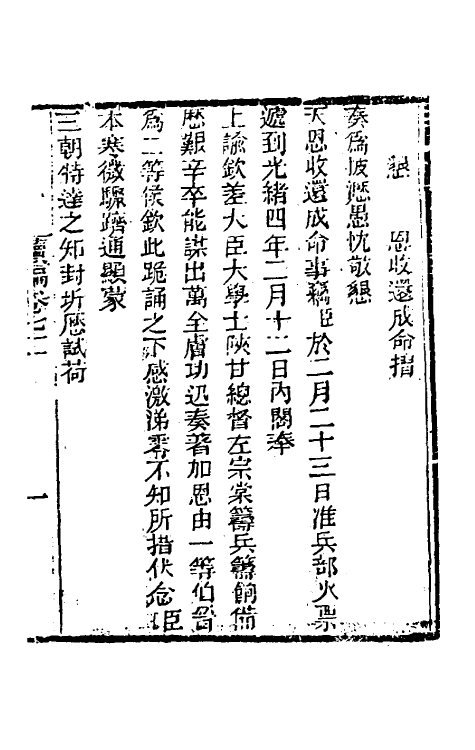 懇 恩收還成命摺
奏為披瀝愚忱敬懇
天恩收還成命事竊臣於二月二十三日准兵部火票
遞到光緒四年二月十二日內閣奉
上諭欽差大臣大學士陝甘總督左宗棠籌兵籌餉備
歷艱辛卒能謀出萬全膚功迅奏著加恩由一等伯晉
為二等侯欽此跪誦之下感激涕零不知所措伏念臣
本寒微驟躋通顯蒙
三朝特達之知封圻歷試荷
續編卷七二
一